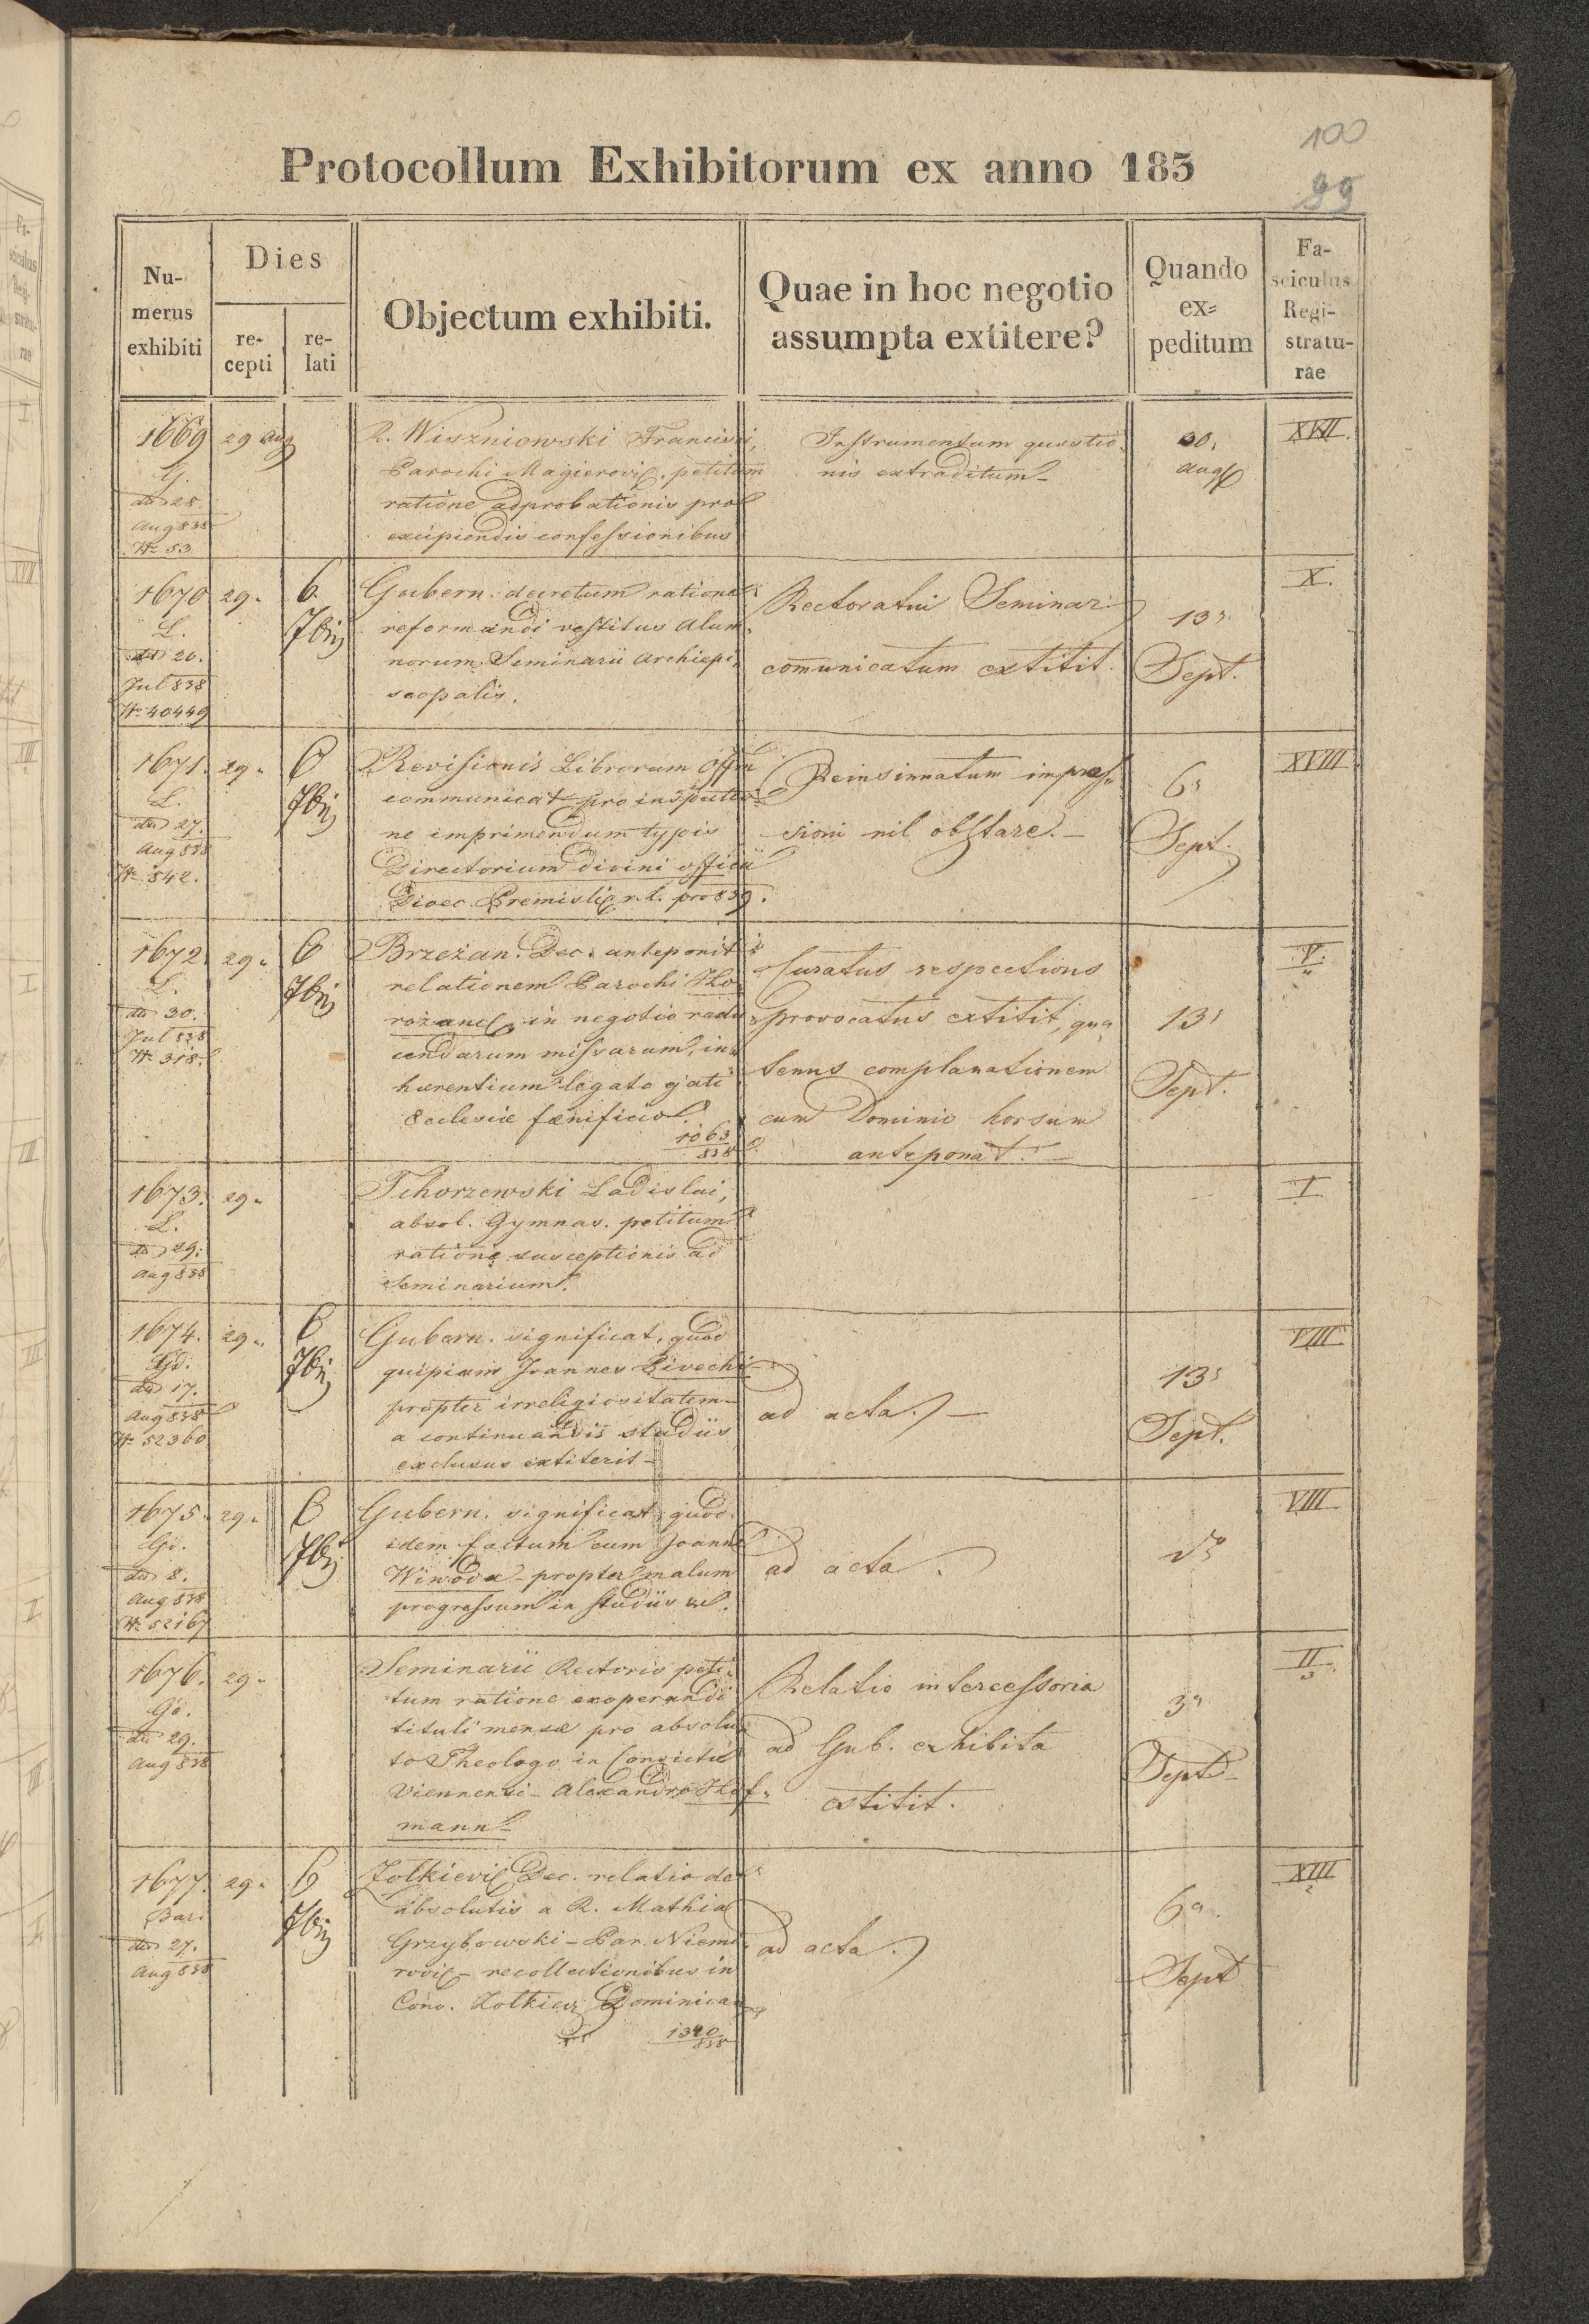 100
Protocollum Exhibitorum ex anno 183
99
Numerus exhibiti
Dies
recepti
relati
Objectum exhibiti.
Quae in hoc negotio assumpta extitere?
Quando expeditum
Fasciculus Registraturae
1669
G.
dto 28.
Aug 838
N: 53
29 Aug
R. Wiszniowski Francisci,
Parochi Magierovi. petitum
ratione adprobationis pro
excipiendis confessionibus
Instrumentum quaestio
nis extraditum
30.
Aug
XVII.
1670
L.
dto 20.
Jul 838
N: 40449
29.
6.
7bris
Gubern. decretum ratione
reformandi vestitus Alum
norum Seminarii Archiepi,
scopalis.
Rectoratui Seminar.
comunicatum extitit.
13
Sept.
X.
1671.
L.
dto 27.
Aug 838
N: 842.
29.
6
7bris
Revisionis Librorum Offm
communicat pro inspectio
ne imprimendum typis
Directorium divini officii
Dioec. Premisli r. l. pro 839.
Reinsinuatum impres
sioni nil obstare.
6
Sept.
XVIII
1672
L.
dto 30.
Jul 838
N: 318.
29.
6
7bris
Brzeżan. Dec. anteponit
relationem Parochi Ho
rożanc, in negotio redu
cendarum missarum, in
haerentium legato gati
Ecclesiae faenificio
1063
838
Curatus respectivus
provocatus extitit, qua
tenus complanationem
cum Dominio horsum
anteponat.
13
Sept.
V.
1673.
L.
dto 29.
Aug 838
29.
Tchorzewski Ladislai,
absol. Gymnas. petitum
ratione susceptionis ad
Seminarium.
I
1674.
Gd.
dto 17.
Aug 838
N: 52360
29.
6
7bris
Gubern. significat, quod
quipiam Joannes Sivechi
propter irreligiositatem
a continuandis studiis
exclusus extiterit
ad acta.
13
Sept.
VIII
1675.
Gd.
dto 8.
Aug 838
N: 52167
29.
6
7bris
Gubern. significat quod
idem factum cum Joanne
Winoda propter malum
progressum in studiis
ad acta.
VIII
1676.
Gd.
dto 29.
Aug 838
29.
Seminarii Rectoris peti
tum ratione exoperandi
tituli mensae pro absolu
to Theologo in Convictu
Viennensi Alexandro Hof
mann
Relatio intercessoria
ad Gub. exhibita
extitit.
3
Sept
II
3
1677.
Bar.
dto 27.
Aug 838
29.
6
7bris
Zolkievi Dec. relatio de
absolutis a R. Mathia
Grzybowski Par. Niemi
rovi recollectionibus in
Conv. Zolkiev Dominican
1340
838
ad acta.
6
Sept
XIII
2